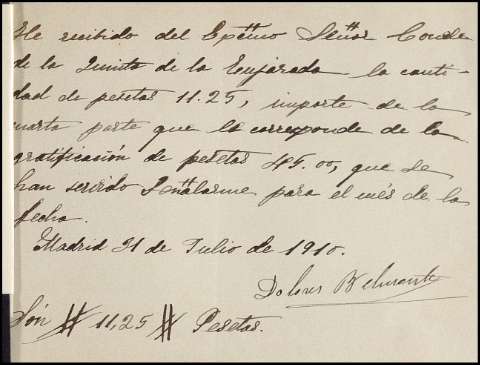 He recibido del Exctmo Señor Conde
de la Quinta de la Enjarada la canti-
dad de pesetas 11.25, importe de la
cuarta parte que le corresponde de la
gratificación de pesetas 45.00, que se
han servido Señalarme para el més de la
fecha.
Madrid 31 de Julio de 1910.
Dolores Belmonte
Són # 11,25 # Pesetas.